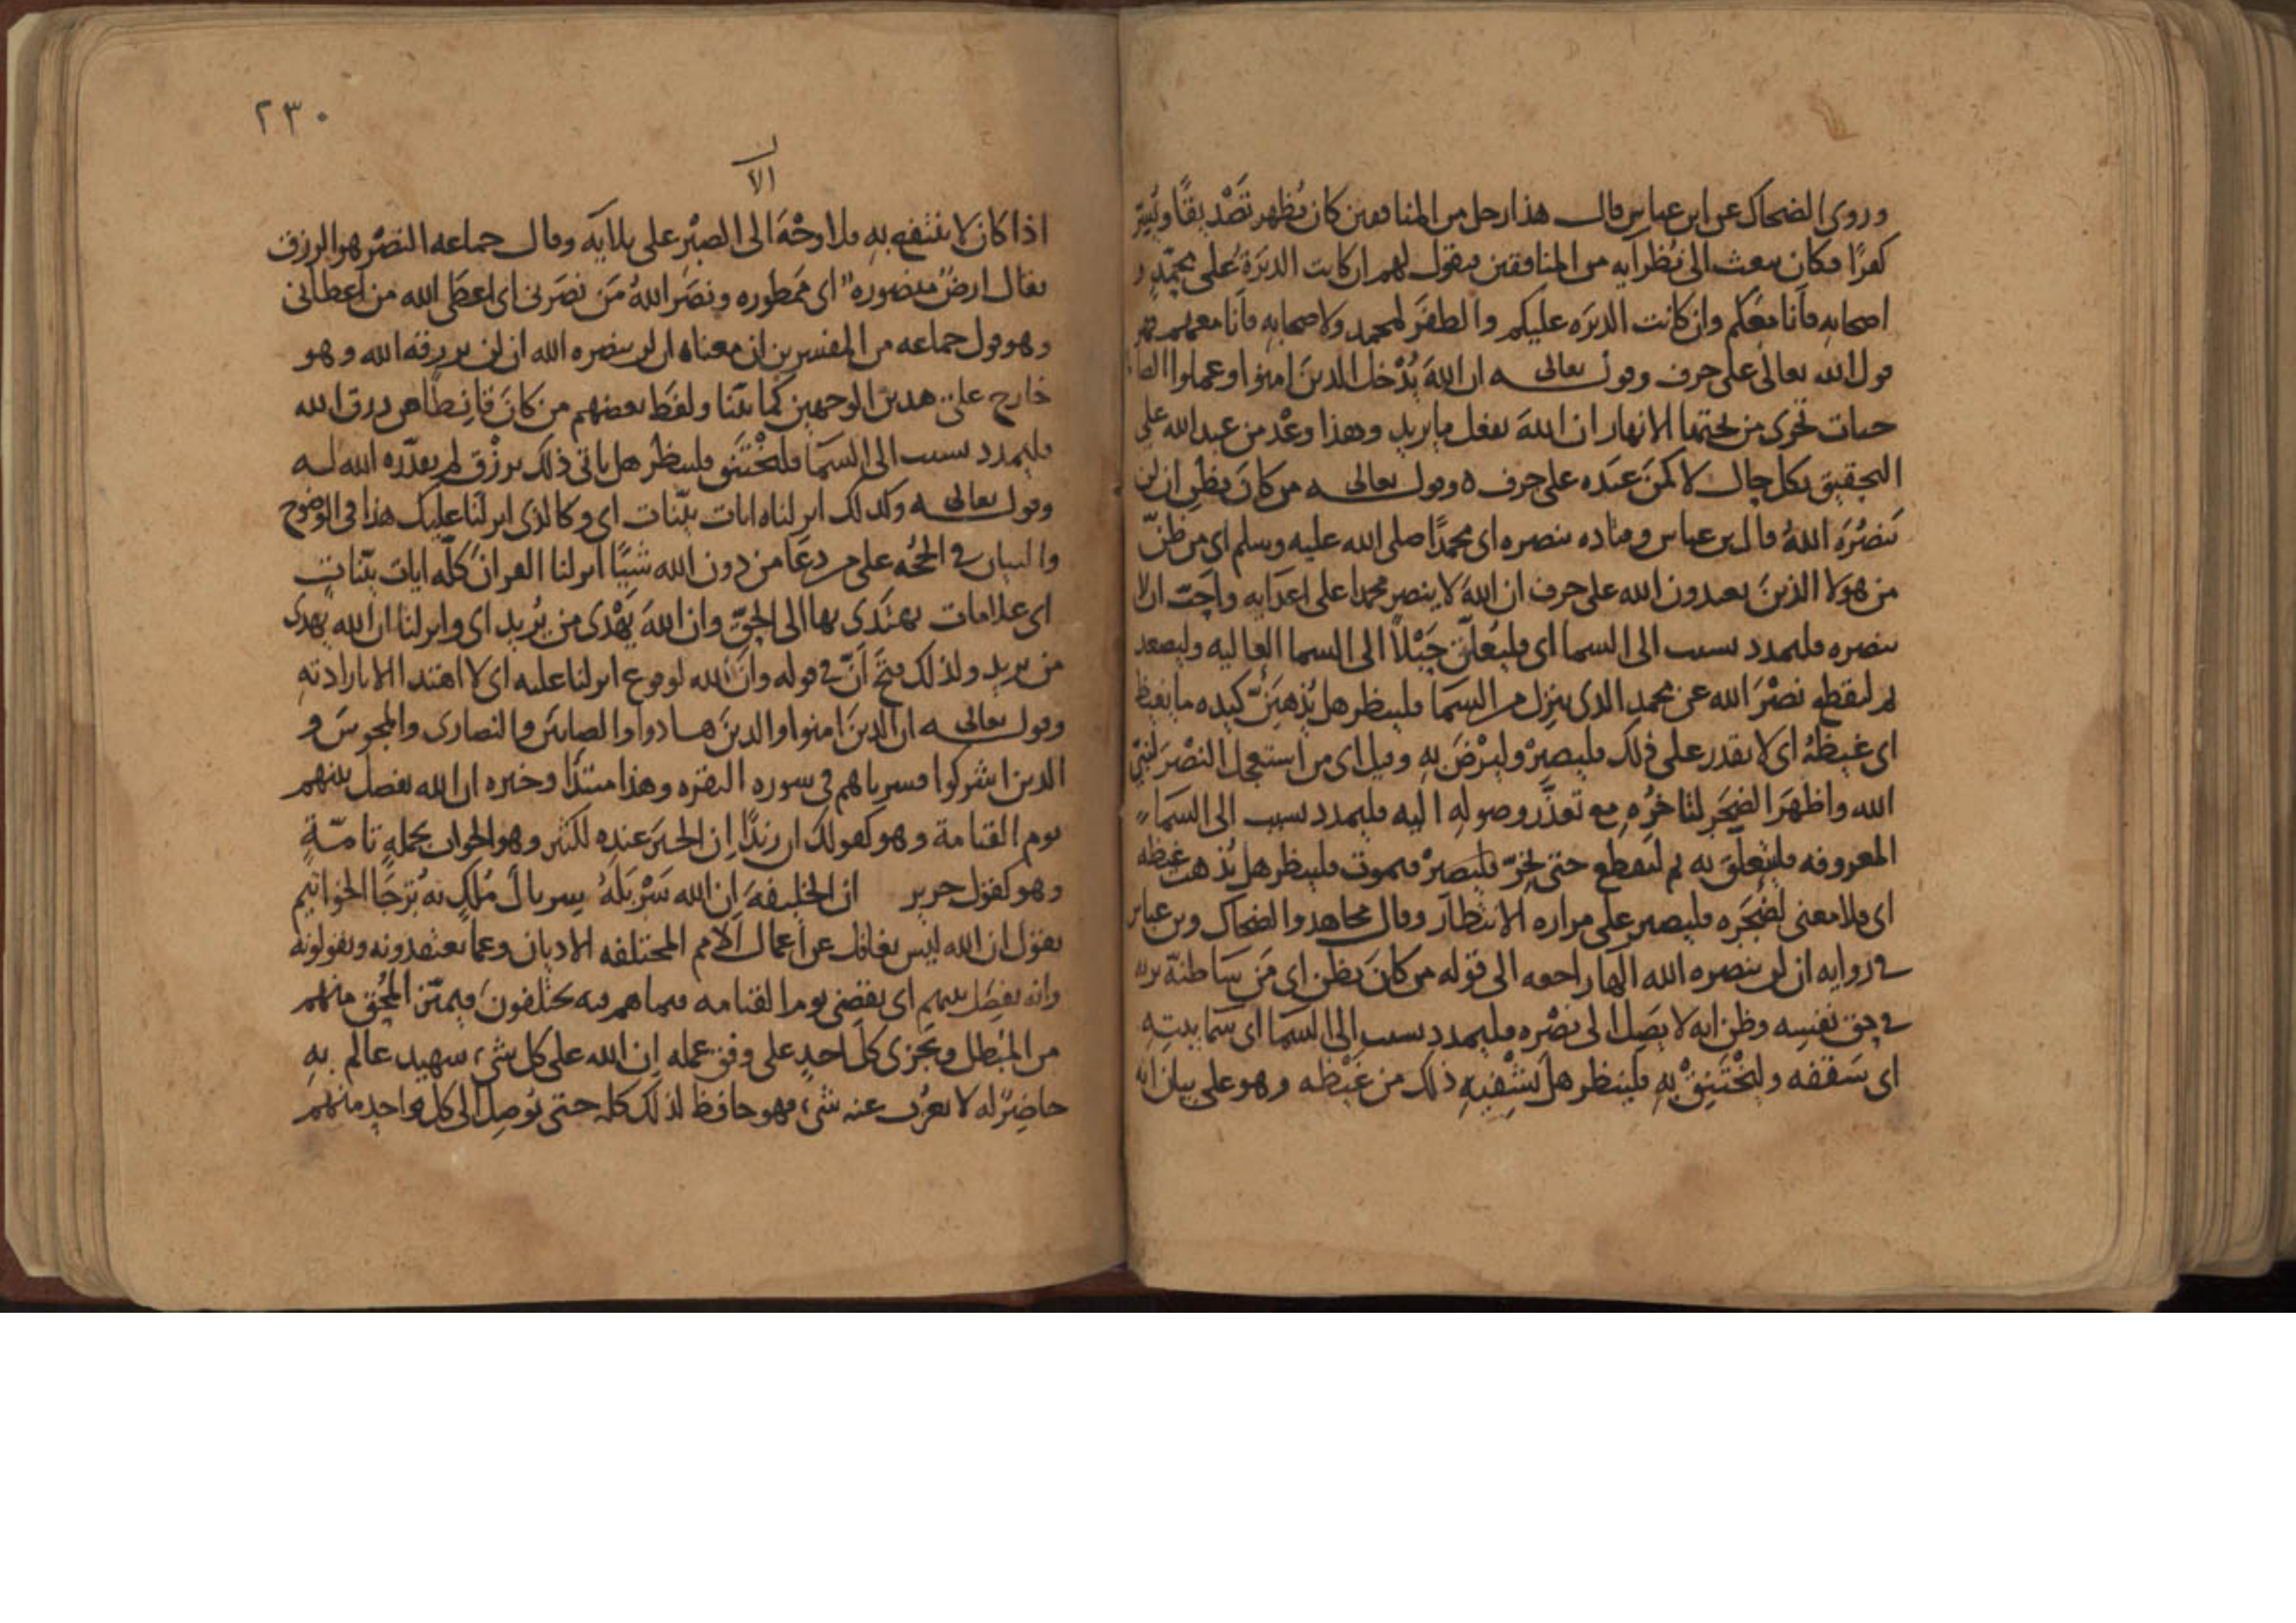 وروى الضحاك عن ابن عباس قال هذا رجل من المنافقين كان يُظهر تَصْديقًا ويُسِرّ
كفرًا وكان يبعث الى نُظرآيه من المنافقين فيقول لهم ان كانت الدبَرَةُ على محمّدٍ و
اصحابهِ فأنا معَكم وان كانت الدبَرَه عليكم والظفَرَ لمحمد ولاصحابهِ فأنا معهم فهو
قول الله تعالى على حرف وقوله تعالى ان اللهَ يُدْخل الذينَ امنوا وعملوا الصا
حات جنات تجرى من تحتها الانهار ان اللهَ يفعل ما يريد وهذا وعْد من عبد الله على
التحقيق بكل حال لا كمَنْ عبَده على حرف ه وقوله تعالى من كانَ يظن ان لن
يَنصُرَه اللهُ قال بن عباس وقتاده ينصره اى محمدًا صلى الله عليه وسلم اى من ظنّ
من هولا الذينَ يعبدون الله على حرف ان اللهَ لا ينصر محمدا على اعدايه واحَبّ ان لا
ينصره فليمدد بسبب الى السما اى فليُعلّق حَبْلاً الى السما العاليه وليصعد
ثم ليقطع نصْرَ الله عن محمد الذى ينزل من السمَا فلينظر هل يُذهبَنّ كيده ما يغيظ
اى غيظَهُ اى لا يقدر على ذلك فليصبِرْ وليرْضَ بهِ وقيل اى من استعجل النصْرَ لنبيّ
الله واظهَرَ الضجَر لتاخرُّهِ مع تعذّر وصولهِ اليه فليمدد بسبب الى السَمآء
المعروفه فليتعلّقَ به ثم ليقطع حتى يَخِرّ فليصبرْ فيموت فلينظر هل يُذهب غيظه
اى فلا معنى لضَجَرِه فليصبر على مراره الانتظار وقال مجاهد والضحاك وبن عباس
فى روايه ان لن ينصره الله الهآ راجعه الى قوله من كانَ يظن اى مَن سَا ظنّه بربه
فى حق نفسِه وظن انه لا يصَل الى نصْره فليمدد بسبب الى السمَا اى سَما بيتهِ
اى سَقفه وليَخْتَنِقْ بهِ فلينظر هل يَشْفيهِ ذلك من غَيْظه وهو على بيان انه
٢٣٠
الا
اذا كانَ لا ينتفع بهِ فلا وجْهَ الى الصبْر على بلآيه وقال جماعه النصْر هو الرزق
يقال ارض منصوره اى ممَطوره ونصَر اللهُ مَن نصَرنى اى اعطَى الله من اعطانى
وهو قول جماعه من المفسرين ان معناه ان لن ينصره الله ان لن يرزقه الله وهو
خارج على هذين الوجهين كما بيّنا ولفظ بعضهم من كانَ قانطا من رزق الله
فليمدد بسبب الى السمَا فليَخْتَنق فلينظر هل ياتى ذلك برزْق لم يقدّره الله له
وقوله تعالى وكذلك انزلناه ايات بيّنات اى وكالذى انزلنا عليك هذا فى الوضوح
والبيان فى الحجّه على من دعَا من دون الله شيًا انزلنا القرانَ كلّه ايات بيّنات
اى علامات يهتدى بها الى الحقّ وان اللهَ يَهْدى من يُريد اى وانزلنا ان الله يهدى
من يريد ولذلك فتحَ أنّ فى قوله وانّ الله لوقوع انزلنا عليه اى لا اهتدا الا بارادتهِ
وقوله تعالى ان الذينَ امنوا والذينَ هادوا والصابئين والنصارى والمجوسَ و
الذين اشركوا فسرناهم فى سوره البقره وهذا مبتدًا وخبره ان الله يفصل بينهم
يوم القيامة وهو كقولك ان زيدًا إن الخيرَ عنده لكثير وهو الجواب بجملهٍ تامّةٍ
وهو كقول جرير ان الخليفهَ إن الله سَرْبَلَهُ سِربالَ مُلكٍ به تُرجَا الخواتيم
يقول ان الله ليس بغافل عن اعمال الامم المختلفه الاديان وعما يعتقدونه ويقولونه
وانه يفصِل بينهم اى يقضى يوم القيامه فيما هم فيه يختلفونَ فيميّز المُحِق منهم
من المبُطل ويَجزى كلَ احدٍ على وفق عمله إن الله على كل شىء شهيد عالم به
حاضِرٌ له لا يعزُب عنه شىء فهو حافظ لذلك كله حتى يُوصِل الى كل واحدٍ منهم